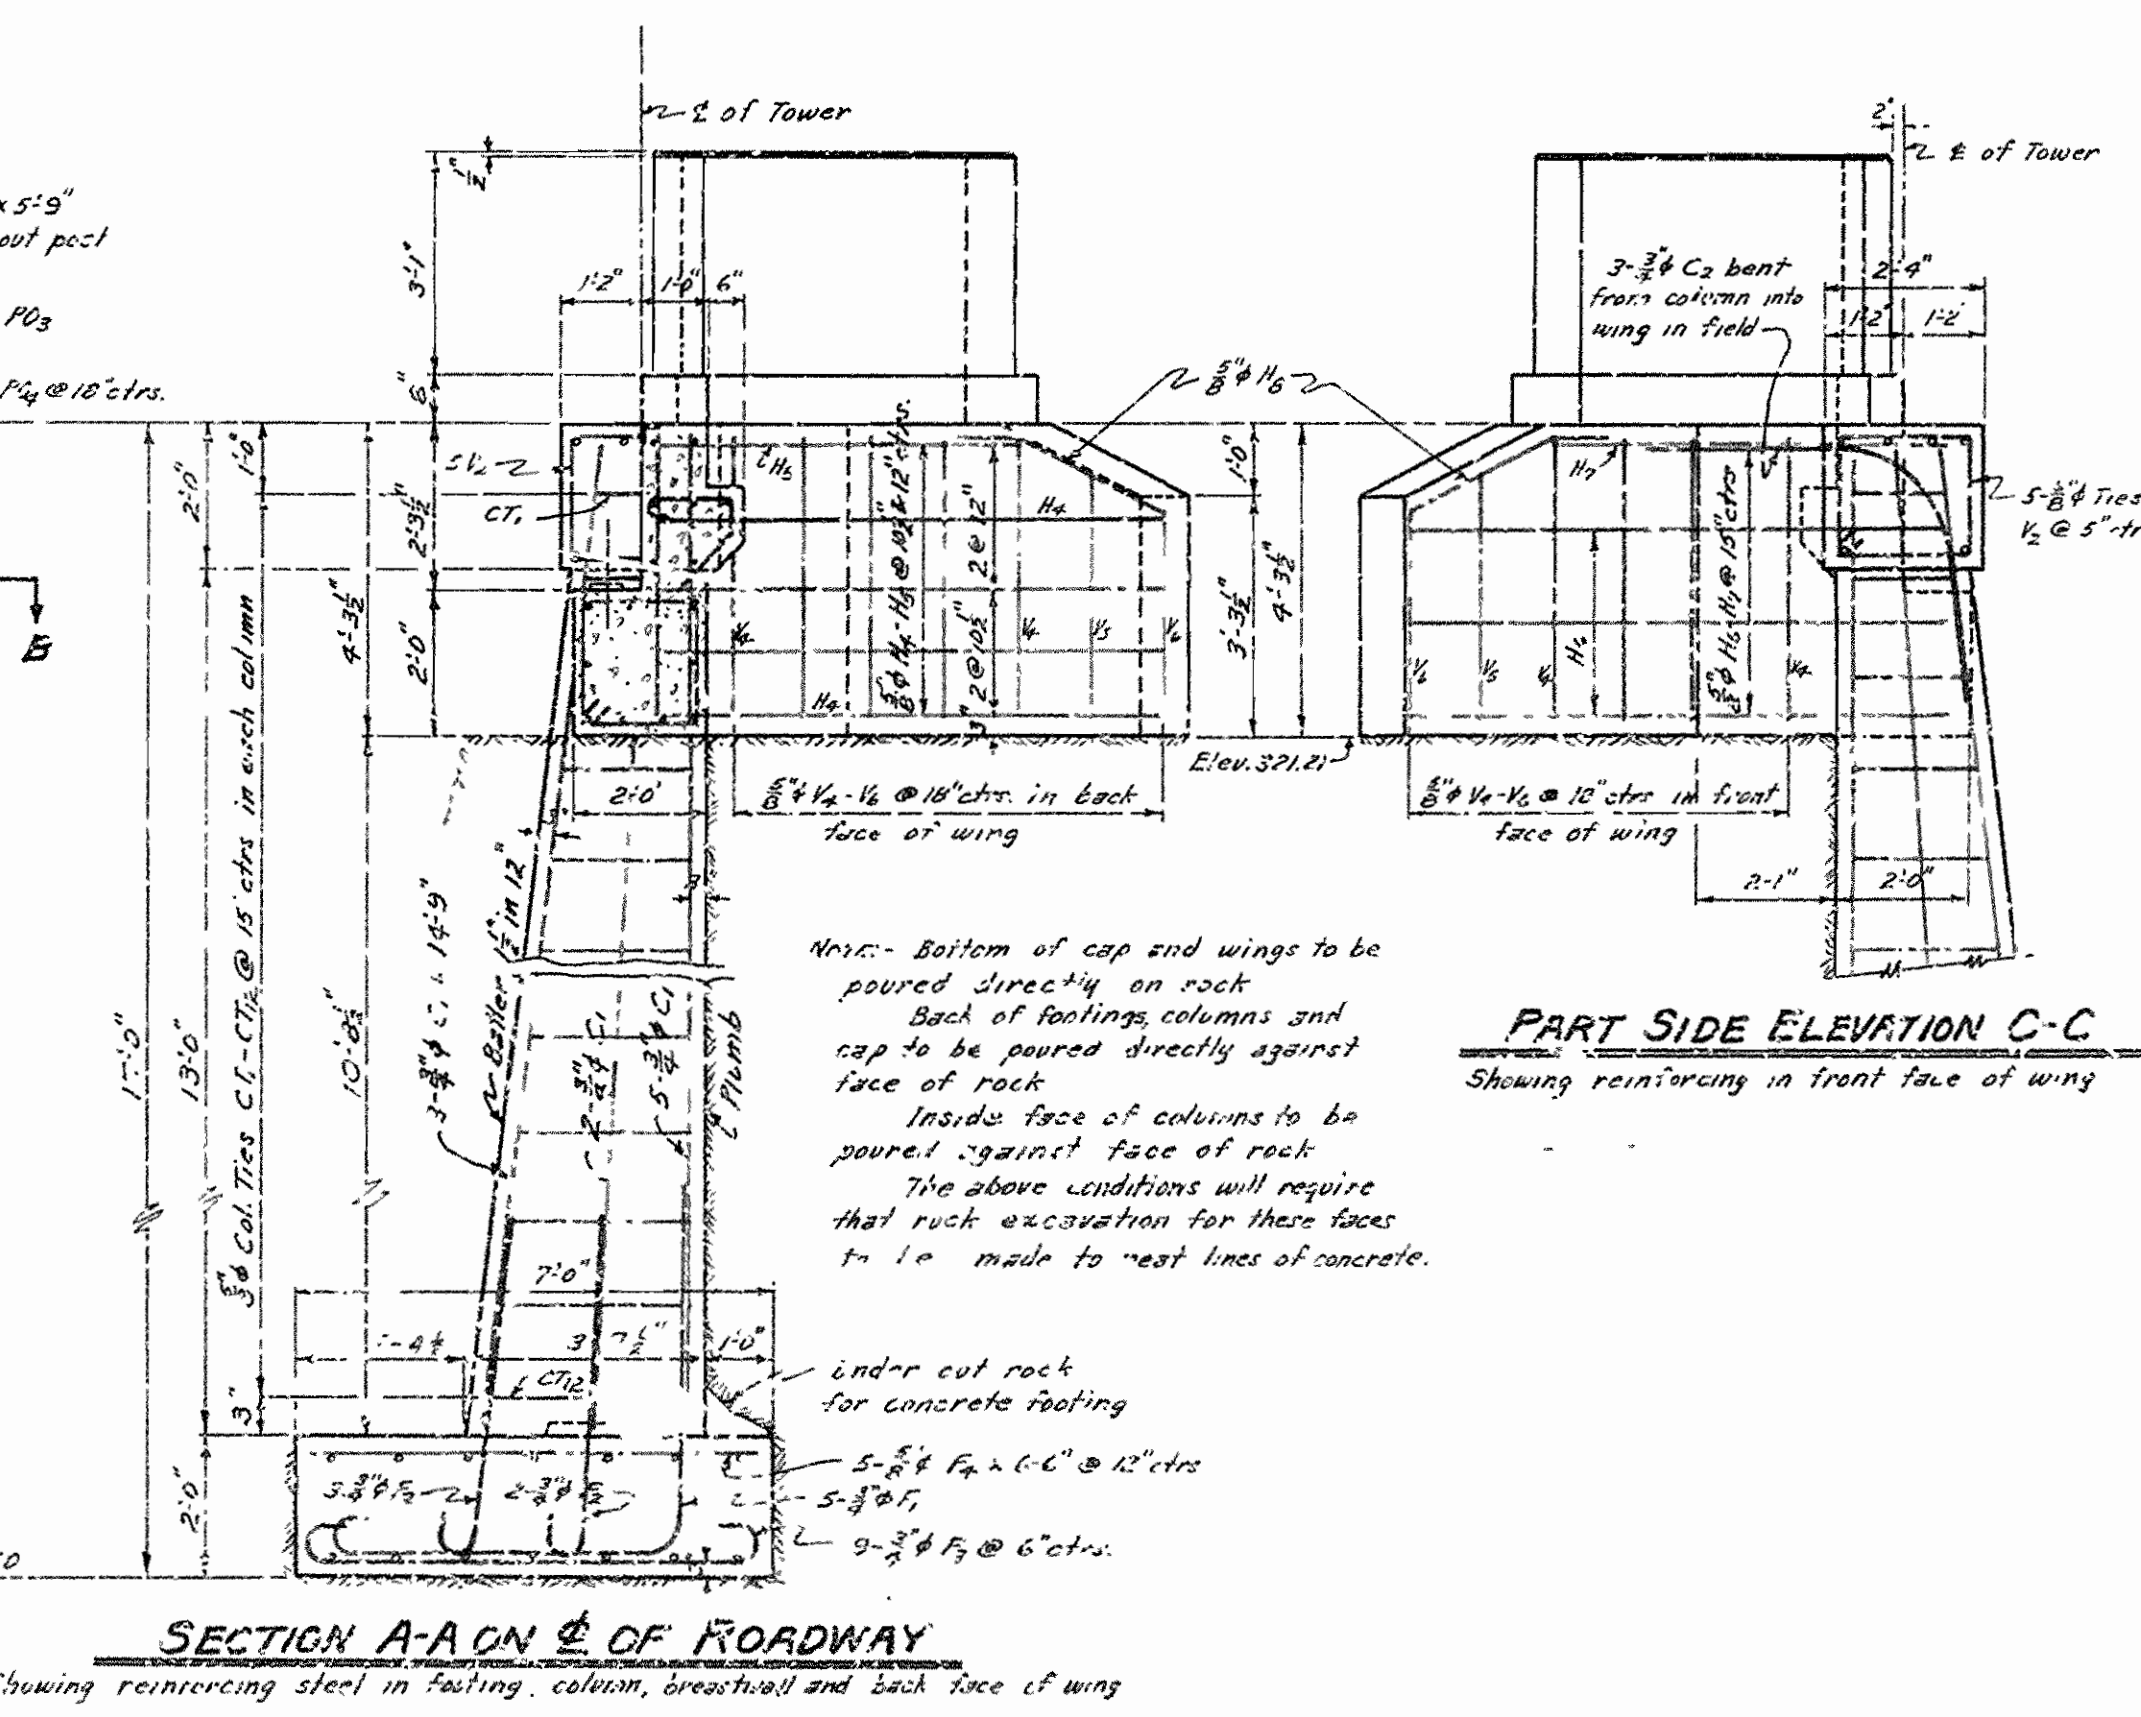 ℄ of Tower
2"
℄ of Tower
x 5'-9"
out post
PO3
@ 18" ctrs.
1/2"
3'-1"
8"
1'-2"
1'-0"
6"
3-3/4"ϕ C2 bent
from column into
wing in field
2'-4"
1'-2"
1'-2"
5/8"ϕ H6
5V2
CT1
H5
H4
H4
5/8"ϕ H4-H5 @ 10 1/2" & 12" ctrs.
2 @ 12"
2 @ 10 1/2"
3"
V4
V4
V5
V6
1'-0"
3'-3 1/2"
4'-3 1/2"
H7
5-5/8"ϕ Ties
V2 @ 5" ctr
H6
V6
V5
V4
V4
2'-0"
1'-0"
2'-3 1/2"
4'-3 1/2"
2'-0"
B
Elev. 321.21
2'-0"
5/8"ϕ V4-V6 @ 18" ctrs. in back
face of wing
5/8"ϕ V4-V6 @ 18" ctrs in front
face of wing
2'-1"
2'-0"
17'-0"
13'-0"
5/8"ϕ Col. Ties CT1-CT12 @ 15" ctrs in each column
10'-8 1/2"
14'-9"
Batter 1 1/2" in 12"
2-3/4"ϕ C1
5-3/4"ϕ C1
Plumb
Note:- Bottom of cap and wings to be
poured directly on rock
Back of footings, columns and
cap to be poured directly against
face of rock
Inside face of columns to be
poured against face of rock
The above conditions will require
that rock excavation for these faces
to be made to neat lines of concrete.
PART SIDE ELEVATION C-C
Showing reinforcing in front face of wing
7'-0"
1'-0"
3"
CT12
Under cut rock
for concrete footing
2'-0"
5-5/8"ϕ F4 x 6'-6" @ 12" ctrs
5-3/4"ϕ F1
9-3/4"ϕ F3 @ 6" ctrs.
SECTION A-A ON ℄ OF ROADWAY
Showing reinforcing steel in footing, column, breastwall and back face of wing